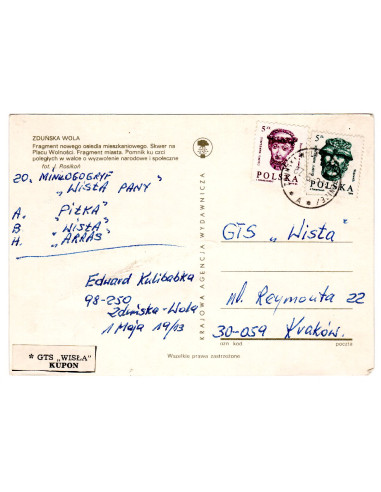 ZDUŃSKA WOLA
Fragment nowego osiedla mieszkaniowego. Skwer na
Placu Wolności. Fragment miasta. Pomnik ku czci
poległych w walce o wyzwolenie narodowe i społeczne
fot. J. Rosikoń
20. MINILOGOGRYF
"WISŁA PANY"
A. "PIŁKA"
B "WISŁA"
H. "ARRAS"
Edward Kulibabka
98-250
Zduńska-Wola
1 Maja 19/13
* GTS „WISŁA”
KUPON
KRAJOWA AGENCJA WYDAWNICZA
5zł
POLSKA
5zł
POLSKA
GTS „Wisła"
ul. Reymonta 22
30-059 Kraków.
ozn kod
poczta
Wszelkie prawa zastrzeżone